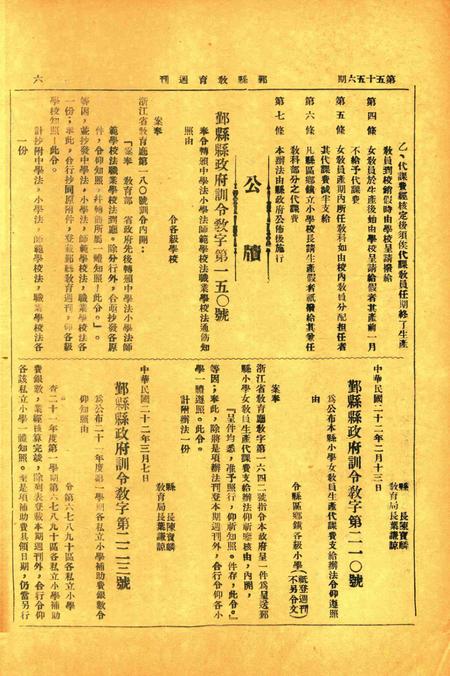 第五十五六期
鄞縣教育週刊
六
乙、代課費經核定後須俟代課教員任期終了生產
教員潤校銷假時由學校呈請撥給
第四條 女教員於生產後始由學校呈請給假者其產前一月
不給予代課費
第五條 女教員產期內所任教科如由校內教員分配擔任者
其代課費減半支給
第六條 凡縣區鄉鎮立小學校長請生產假者祇撥給其兼任
教科部分之代課費
第七條 本辦法由縣政府公佈後施行
公牘
鄞縣縣政府訓令教字第一五〇號
令各級學校
奉令轉頒中學法小學法師範學校法職業學校法通飭知
照由
案奉
浙江省教育廳第一八〇號訓令內開：
『案奉 教育部 省政府先後轉頒中學法小學法師
範學校法職業學校法到廳。除分行外，合亟抄發各原
件，令仰知照，幷轉飭所屬一體知照！此令。』。
等因，並抄發中學法，小學法，師範學校法，職業學校法各
一份；奉此，合行抄同原附件，登載鄞縣教育週刊，仰各級
學校知照。此令。
計抄附中學法，小學法，師範學校法，職業學校法各
一份
中華民國二十二年二月十三日
縣長陳寶麟
教育局長葉謙諒
鄞縣縣政府訓令教字第二一〇號
令縣區鄉鎮各級小學(祇登週刊不另令文)
爲公布本縣小學女教員生產代課費支給辦法令仰遵照
由
案奉
浙江省教育廳教字第一六四二號指令本政府呈一件爲呈送鄞
縣小學女教員生產代課費支給辦法仰祈鑒核由，內開，
『呈件均悉，准予照行，仰祈知照。件存，此令。』
等因；奉此，除將是項辦法刊登本期週刊外，合行令仰各小
學一體遵照。此令。
計附辦法一份
中華民國二十二年三月七日
縣長陳寶麟
教育局長葉謙諒
鄞縣縣政府訓令教字第二二三號
令第六七八九十區各私立小學
爲公布二十一年度第一學期各私立小學補助費銀數令
仰知照由
查二十一年度第一學期第六七八九十區各私立小學補助
費銀數，業經核算完竣，除列表登載本期週刊外，合行令仰
各該私立小學一體知照。至是項補助費具領日期，仍當另行